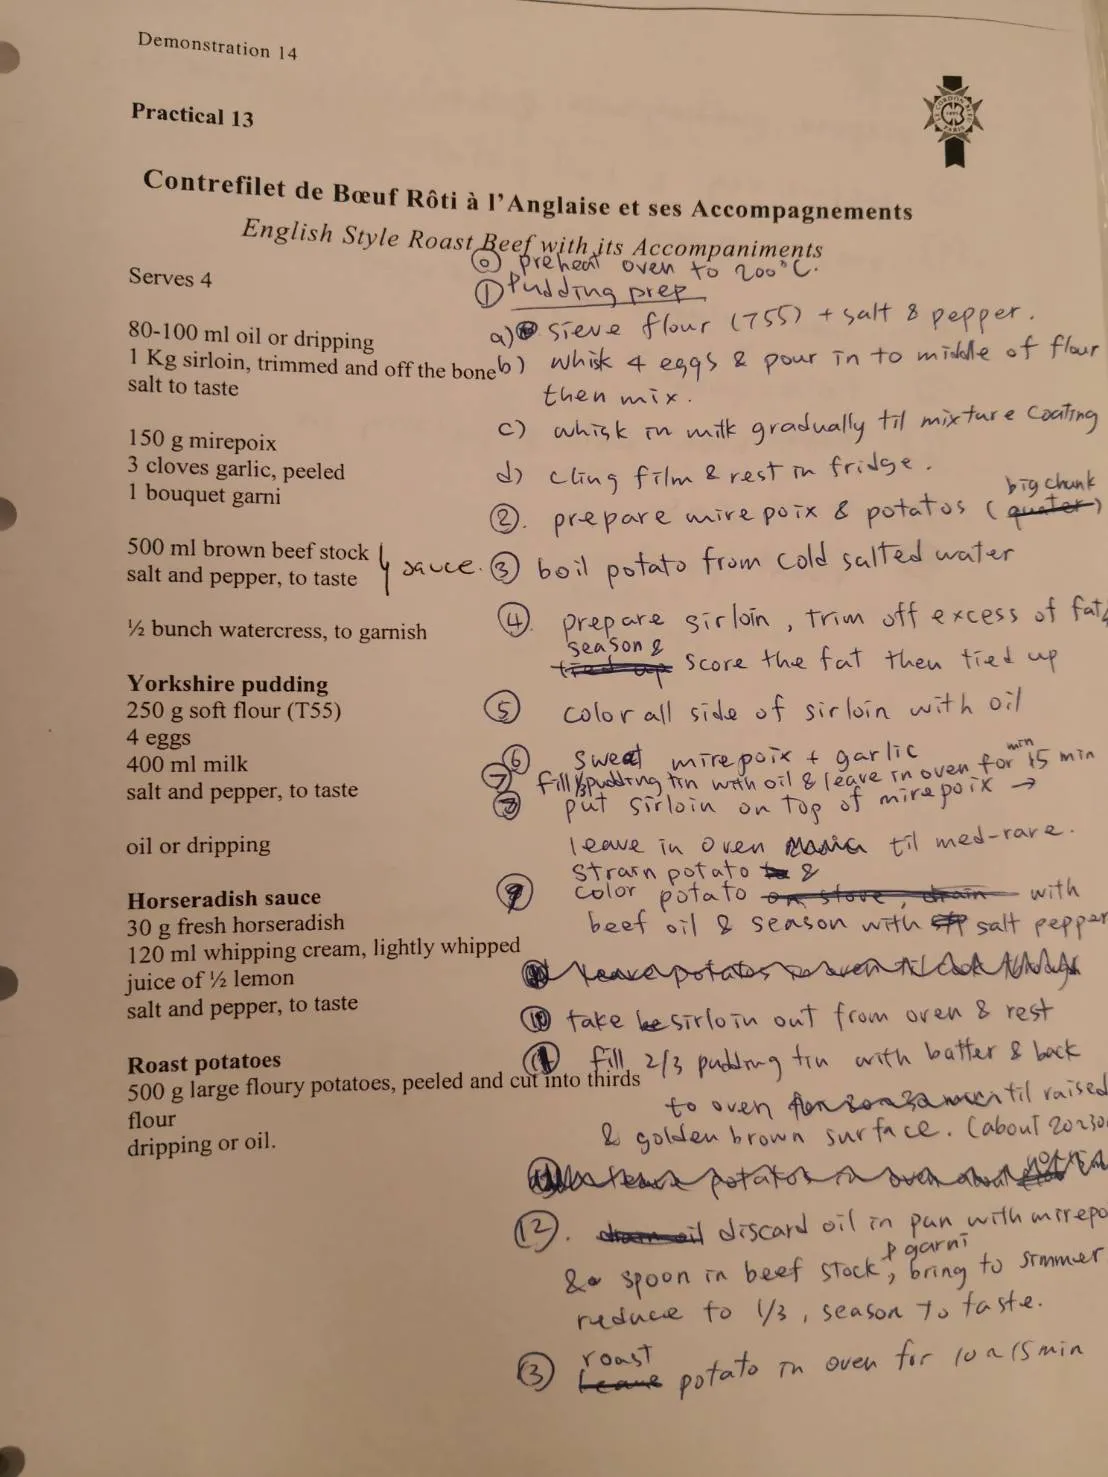 Demonstration 14
Practical 13
LE CORDON BLEU
PARIS
Contrefilet de Bœuf Rôti à l'Anglaise et ses Accompagnements
English Style Roast Beef with its Accompaniments
Serves 4
80-100 ml oil or dripping
1 Kg sirloin, trimmed and off the bone
salt to taste
150 g mirepoix
3 cloves garlic, peeled
1 bouquet garni
500 ml brown beef stock
salt and pepper, to taste
sauce.
½ bunch watercress, to garnish
Yorkshire pudding
250 g soft flour (T55)
4 eggs
400 ml milk
salt and pepper, to taste
oil or dripping
Horseradish sauce
30 g fresh horseradish
120 ml whipping cream, lightly whipped
juice of ½ lemon
salt and pepper, to taste
Roast potatoes
500 g large floury potatoes, peeled and cut into thirds
flour
dripping or oil.
⓪ preheat oven to 200°C.
① Pudding prep
a) sieve flour (T55) + salt & pepper.
b) whisk 4 eggs & pour in to middle of flour
then mix.
c) whisk in milk gradually til mixture coating
d) cling film & rest in fridge.
big chunk
②. prepare mirepoix & potatos (quater)
③ boil potato from cold salted water
④. prepare sirloin, trim off excess of fat,
season &
tied up score the fat then tied up
⑤ color all side of sirloin with oil
⑥ sweat mirepoix + garlic
min
⑦ fill 1/3 pudding tin with oil & leave in oven for 15 min
⑧ put sirloin on top of mirepoix →
leave in oven til med-rare.
strain potato &
⑨ color potato on stove, drain with
beef oil & season with salt pepper
leave potatos in oven til cook through
⑩ take sirloin out from oven & rest
⑪ fill 2/3 pudding tin with batter & back
to oven til raised
& golden brown surface. (about 20~30
leave potatos in oven about
⑫. drain oil discard oil in pan with mirepo
& garni
& spoon in beef stock, bring to simmer
reduce to 1/3, season to taste.
roast
⑬ leave potato in oven for 10~15min